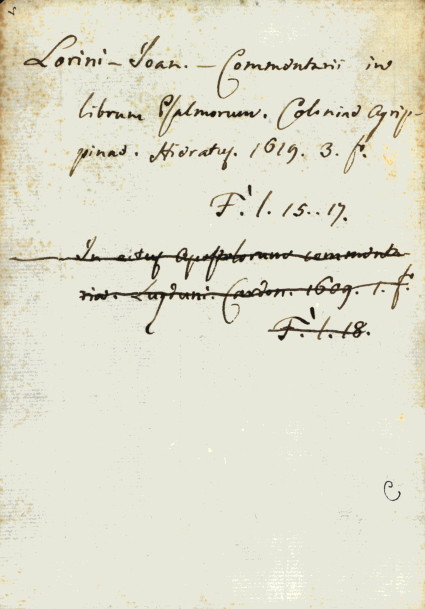 Lorini - Joan. - Commentarii in
librum Psalmorum. Coloniae Agrip-
pinae. Hieratus. 1619. 3. f.
F. l. 15..17.
In actus Apostolorum commenta
ria. Lugduni. Cardon. 1609. 1. f.
F. l. 18.
C